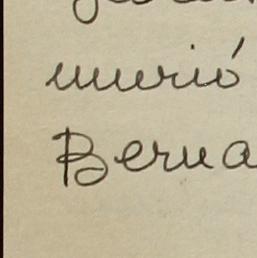 murió
Berna